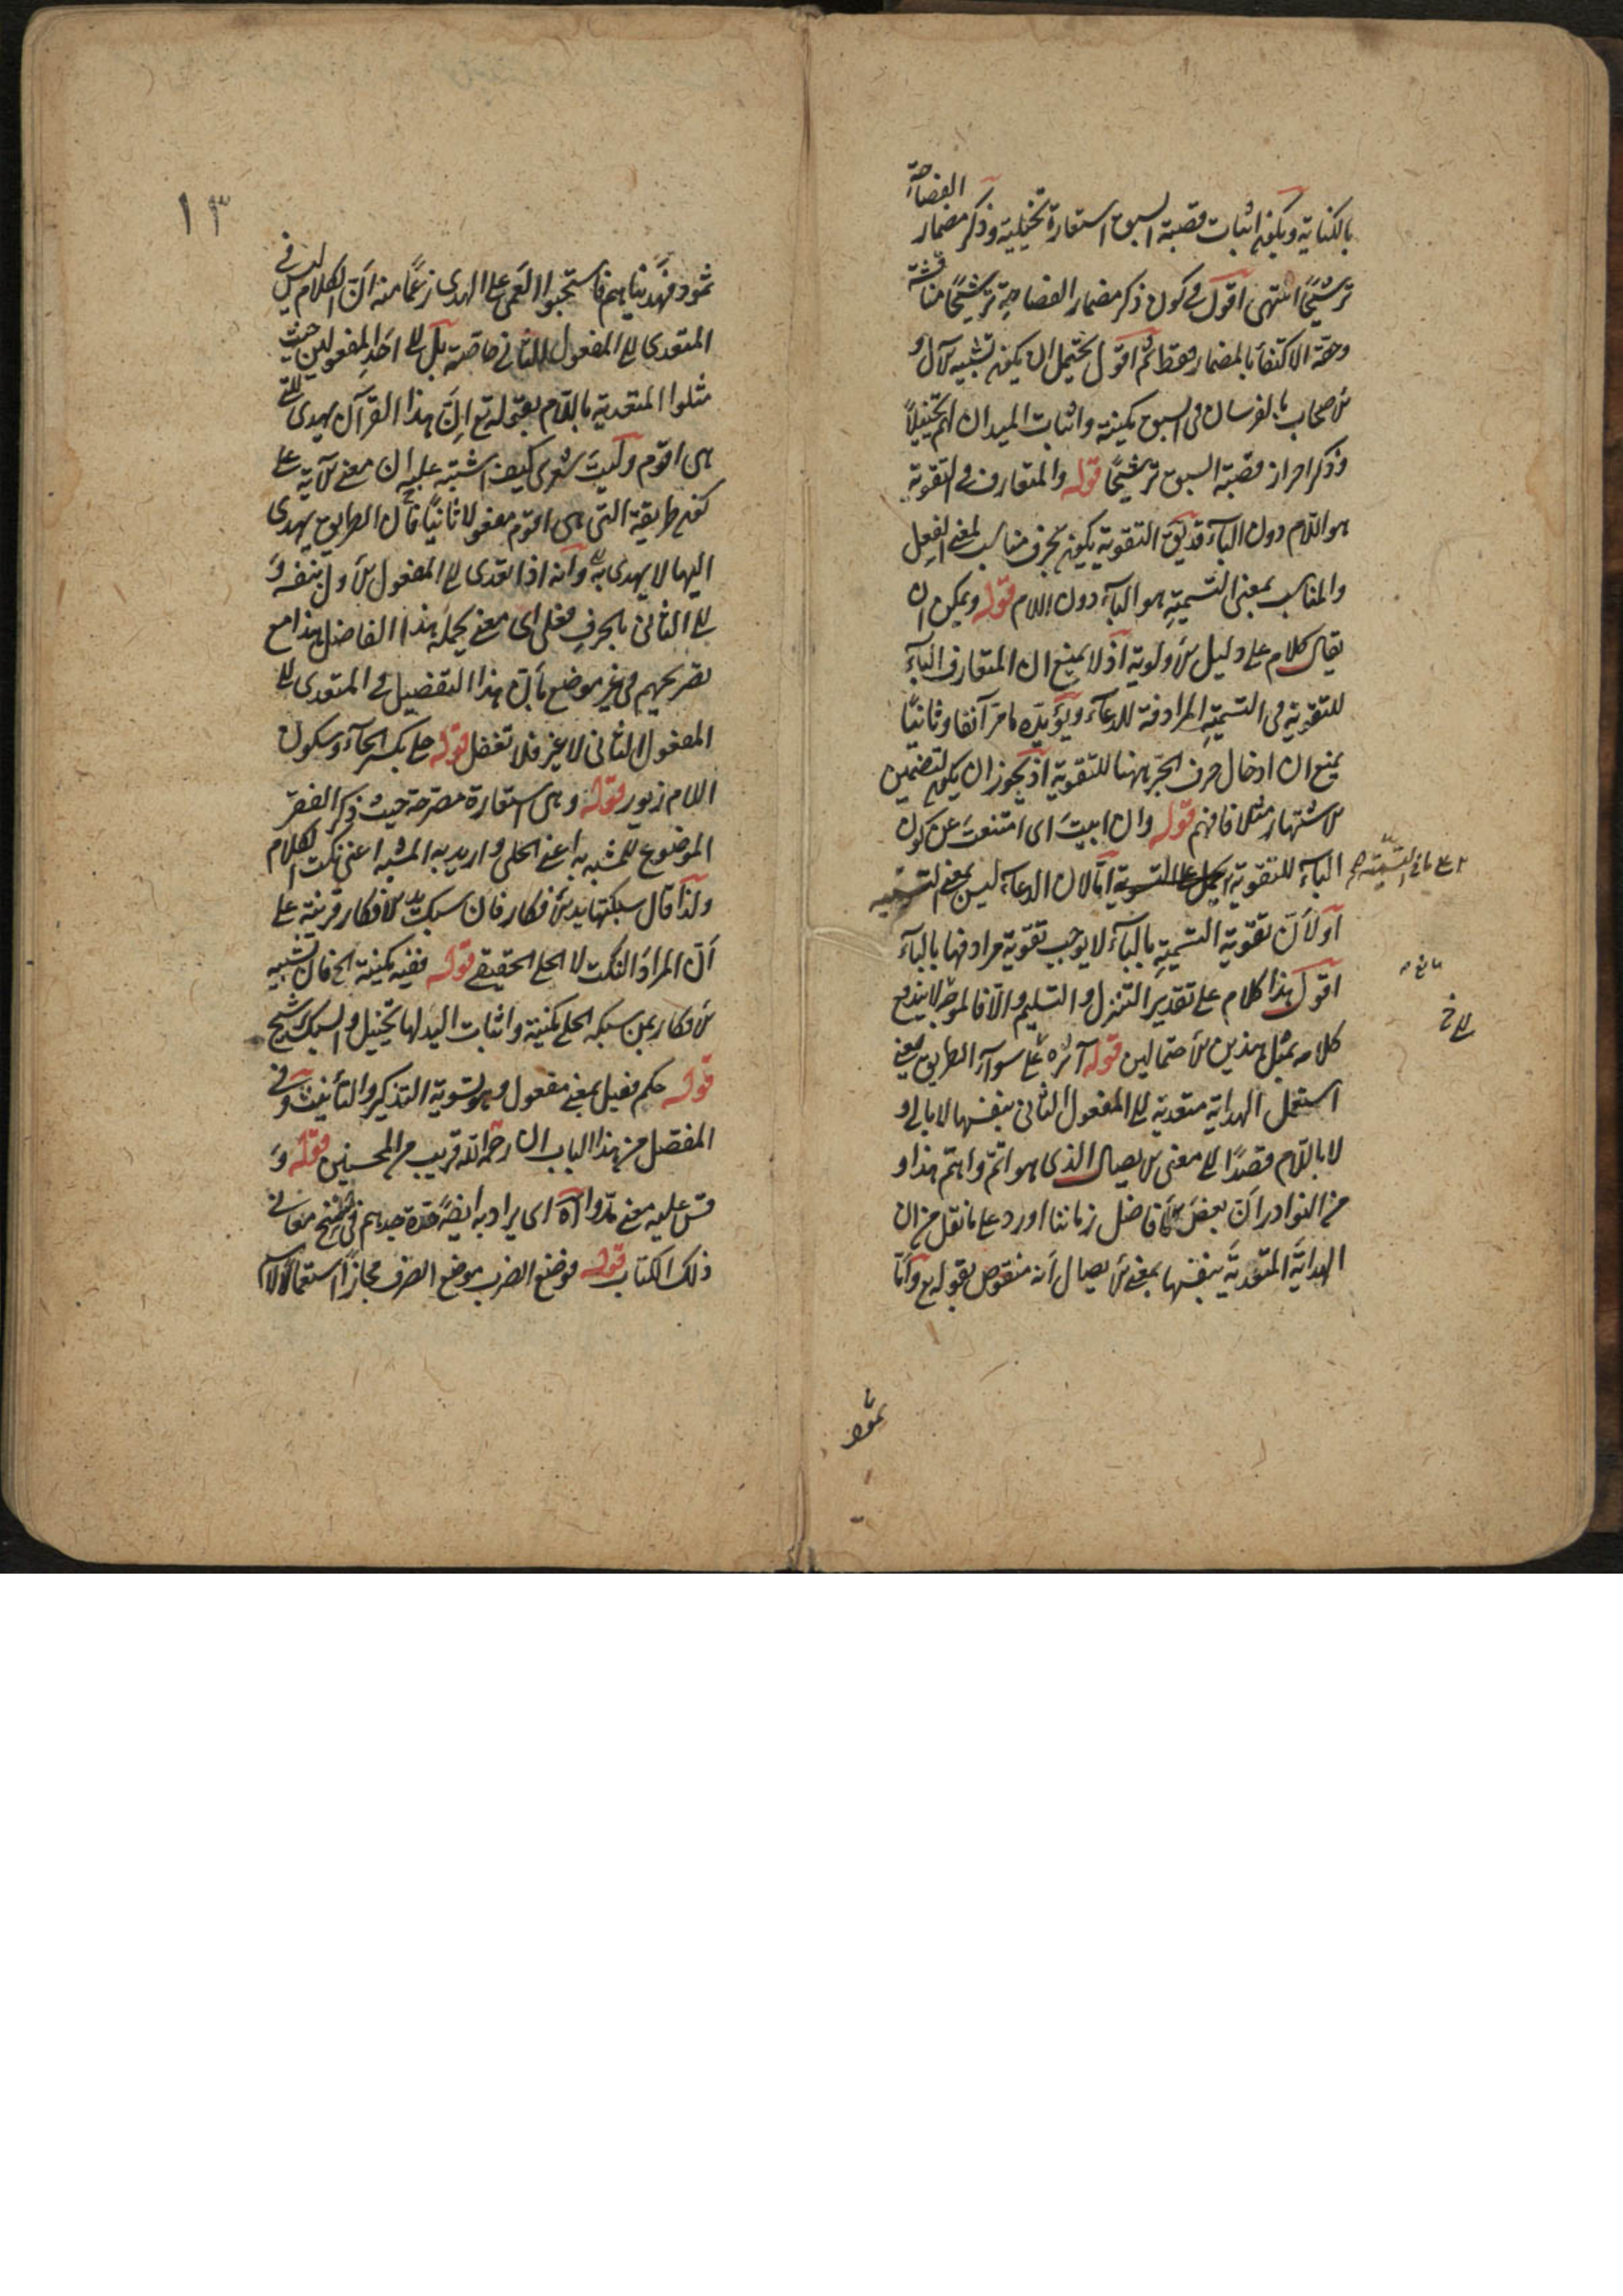 بالكناية ويكون اثبات قصبة السبق استعارة تخييلية وذكر مضمار الفصاحة
ترشيحًا انتهى اقول في كون ذكر مضمار الفصاحة ترشيحًا مناقشة
وحقه الاكتفاء بالمضمار فقط ثم اقول يحتمل ان يكون تشبيه الآل و
الاصحاب بالفرسان في السبق مكنية واثبات الميدان لهم تخييلاً
وذكر احراز قصبة السبق ترشيحًا قوله والمتعارف في التقوية
هو اللام دون الباء قد يق التقوية يكون بحرف مناسب لمعنى الفعل
والمناسب بمعنى التسمية هو الباء دون اللام قوله ويمكن ان
يقال كلام على دليل الاولوية اذ لا يمنع ان المتعارف الباء
للتقوية في التسمية المرادفة للدعاء ويؤيده ما مر آنفا وثانيًا
يمنع ان ادخال حرف الجر ههنا للتقوية اذ يجوز ان يكون لتضمين
الاشتهار مثلا فافهم قوله وان ابيت اى امتنعت عن كون
الباء للتقوية امّا لان الدعاء ليس بمعنى التسمية
او لأن تقوية التسمية بالباء لا يوجب تقوية مرادفها بالباء
اقول هذا كلام على تقدير التنزل والتسليم والّا فالموجّه لا يندفع
كلامه بمثل هذين الاحتمالين قوله آثره على سواء الطريق يعني
استعمل الهداية متعدية الى المفعول الثاني بنفسها لا بالى و
لا باللام قصدًا الى معنى الايصال الذى هو اتمّ واهتم هذا و
من النوادر أنّ بعض الافاضل زماننا اورد على ما نقل من ان
الهداية المتعدية بنفسها بمعنى الايصال أنه منقوض بقوله تع وأمّا
ثمود
١٣
ثمود فهديناهم فاستحبوا العمى على الهدى زعمًا منه انّ الكلام ليس في
المتعدى الى المفعول الثاني خاصة بل الى احد المفعولين حيث
مثلوا المتعدية باللام بقوله تع إنّ هذا القرآن يهدى للتي
هى اقوم وليت شعرى كيف اشتبه عليه ان معنى الآية على
كون طريقة التي هى اقوم مفعولا ثانيًا فان الطريق يهدى
اليها لا يهدى به وأنه اذا تعدى الى المفعول الاول بنفسه و
الى الثاني بالحرف فعلى اى معنى يحمله هذا الفاضل هذا مع
تصريحهم في غير موضع بأن هذا التفصيل في المتعدى الى
المفعول الثاني لا غير فلا تغفل قوله حلى بكسر الحاء وسكون
اللام زيور قوله وهى استعارة مصرحة حيث ذكر الفقر
الموضوع للمشبه به اعنى الحلى واريد به المشبه اعنى نكت الكلام
ولذا قال سبكتها يد الافكار فان سبكت يد الافكار قرينة على
أنّ المراد النكت لا الحلى الحقيقي قوله ففيه مكنية الخ فان تشبيه
الافكار بمن سبكه الحلى مكنية واثبات اليد لها تخييل والسبك ترشيح
قوله حكم فعيل بمعنى مفعول وهو تسوية التذكير والتأنيث وفي
المفصل من هذا الباب ان رحمة الله قريب من المحسنين قوله و
قس عليه معنى مدّوا اه اى يراد به ايضًا حدة جدهم في تنقيح معاني
ذلك الكتاب قوله فوضع الضرب موضع الصرف مجازًا استعمالا